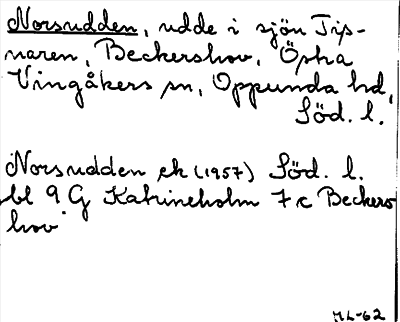 Norsudden, udde i sjön Tis-
naren, Beckershov, Östra
Vingåkers sn, Oppunda hd,
Söd. l.
Norsudden ek (1957) Söd. l.
bl 9 G Katrineholm 7 c Beckers
hov
ML-62